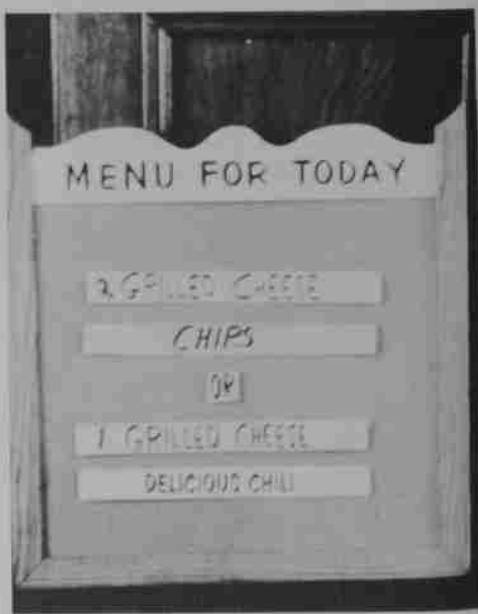 MENU FOR TODAY
2 GRILLED CHEESE
CHIPS
OR
1 GRILLED CHEESE
DELICIOUS CHILI